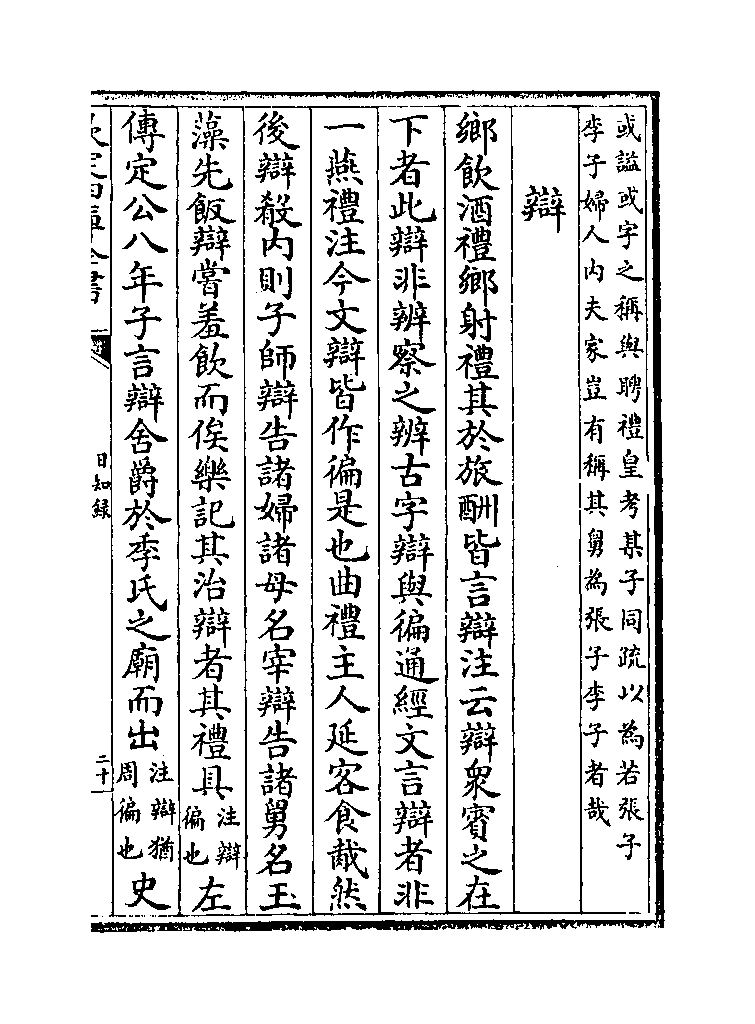 或謚或字之稱與聘禮皇考某子同疏以為若張子
李子婦人内夫家豈有稱其舅為張子李子者哉
辯
鄉飲酒禮鄉射禮其於旅酬皆言辯注云辯衆賓之在
下者此辯非辨察之辨古字辯與徧通經文言辯者非
一燕禮注今文辯皆作徧是也曲禮主人延客食胾然
後辯殽内則子師辯告諸婦諸母名宰辯告諸舅名玉
藻先飯辯嘗羞飲而俟樂記其治辯者其禮具
注辯
徧也
左
傳定公八年子言辯舍爵於季氏之廟而出
注辯猶
周徧也
史
日知録
二十一